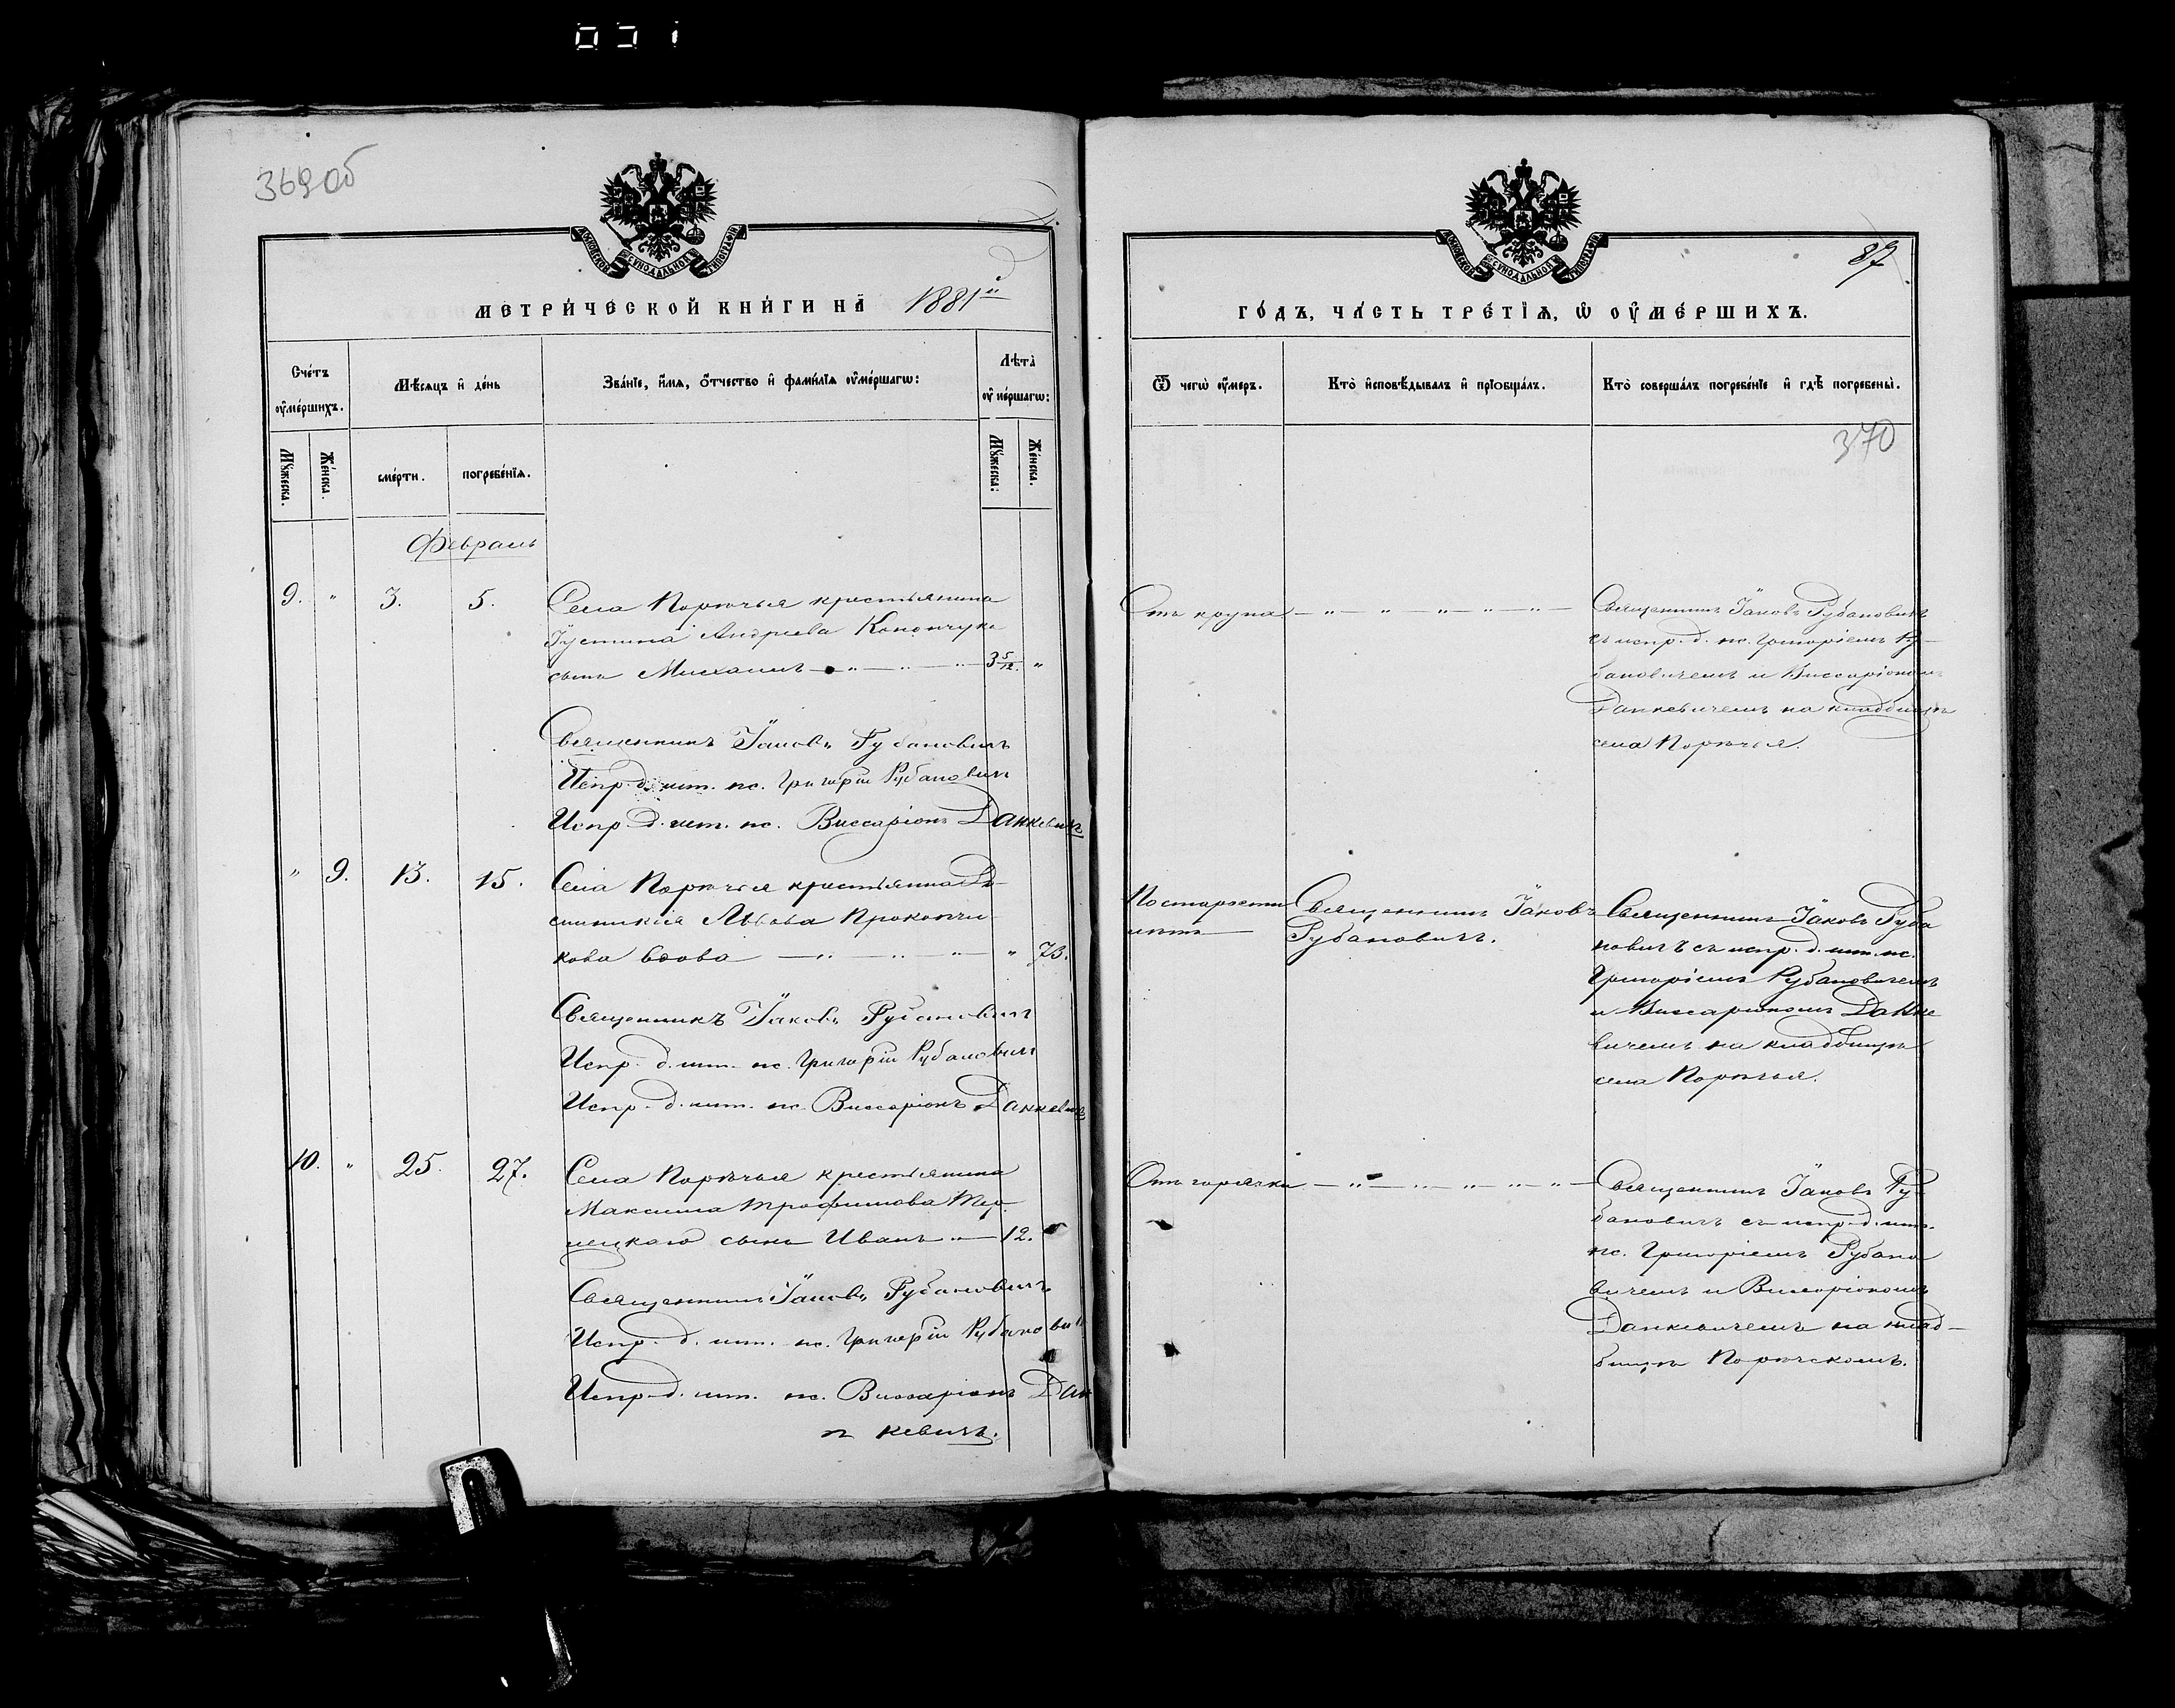 051
369об
МОСКОВСКОЙ СѴНОДАЛЬНОЙ ТИПОГРАФІИ
МЕТРИ́ЧЕСКОЙ КНИ́ГИ НА̀ 1881й
Сче́тъ ᲂу҆ме́ршихъ.
Мѣ́сяцъ и҆ де́нь
Зва́нїе, и҆́мя, ѻ҆́тчество и҆ фами́лїя ᲂу҆ме́ршагѡ:
Лѣта̀ ᲂу҆ме́ршагѡ:
Мꙋ́жеска.
Же́нска.
сме́рти.
погребе́нїя.
Мꙋ́жеска:
Же́нска.
Февраль
9. " 3. 5. Села Порѣчья крестьянина
Іустина Андреева Конончука
сынъ Михаилъ 3 5/12. "
Священникъ Іаковъ Рубановичъ
Испр. д. шт. пс. Григорій Рубановичъ
Испр. д. шт. пс. Виссаріонъ Данкевичъ
" 9. 13. 15. Села Порѣчья крестьянина
Львова Прокопчу-
кова вдова " 73.
Священникъ Іаковъ Рубановичъ
Испр. д. шт. пс. Григорій Рубановичъ
Испр. д. шт. пс. Виссаріонъ Данкевичъ
10. " 25. 27. Села Порѣчья крестьянина
Максима Трофимова Тер-
лецкаго сынъ Иванъ 12.
Священникъ Іаковъ Рубановичъ
Испр. д. шт. пс. Григорій Рубановичъ
Испр. д. шт. пс. Виссаріонъ Дан
кевичъ.
МОСКОВСКОЙ СѴНОДАЛЬНОЙ ТИПОГРАФІИ
87
ГО́ДЪ, ЧА́СТЬ ТРЕ́ТЇѦ, Ѡ҆ ОУ҆МЕ́РШИХЪ.
Ѿ чегѡ̀ ᲂу҆́меръ.
Кто̀ и҆сповѣ́дывалъ и҆ прїобща́лъ.
Кто̀ соверша́лъ погребе́нїе и҆ гдѣ̀ погребены̀.
370
Отъ крупа
Священникъ Іаковъ Рубановичъ
съ испр. д. пс. Григоріемъ Ру-
бановичемъ и Виссаріономъ
Данкевичемъ на кладбищѣ
села Порѣчья.
По старости
лѣтъ
Священникъ Іаковъ
Рубановичъ.
Священникъ Іаковъ Руба
новичъ съ испр. д. шт. пс.
Григоріемъ Рубановичемъ
и Виссаріономъ Данке
вичемъ на кладбищѣ
села Порѣчья.
Отъ горячки
Священникъ Іаковъ Ру-
бановичъ съ испр. д. шт.
пс. Григоріемъ Рубано
вичемъ и Виссаріономъ
Данкевичемъ на клад-
бищѣ Порѣчскомъ.